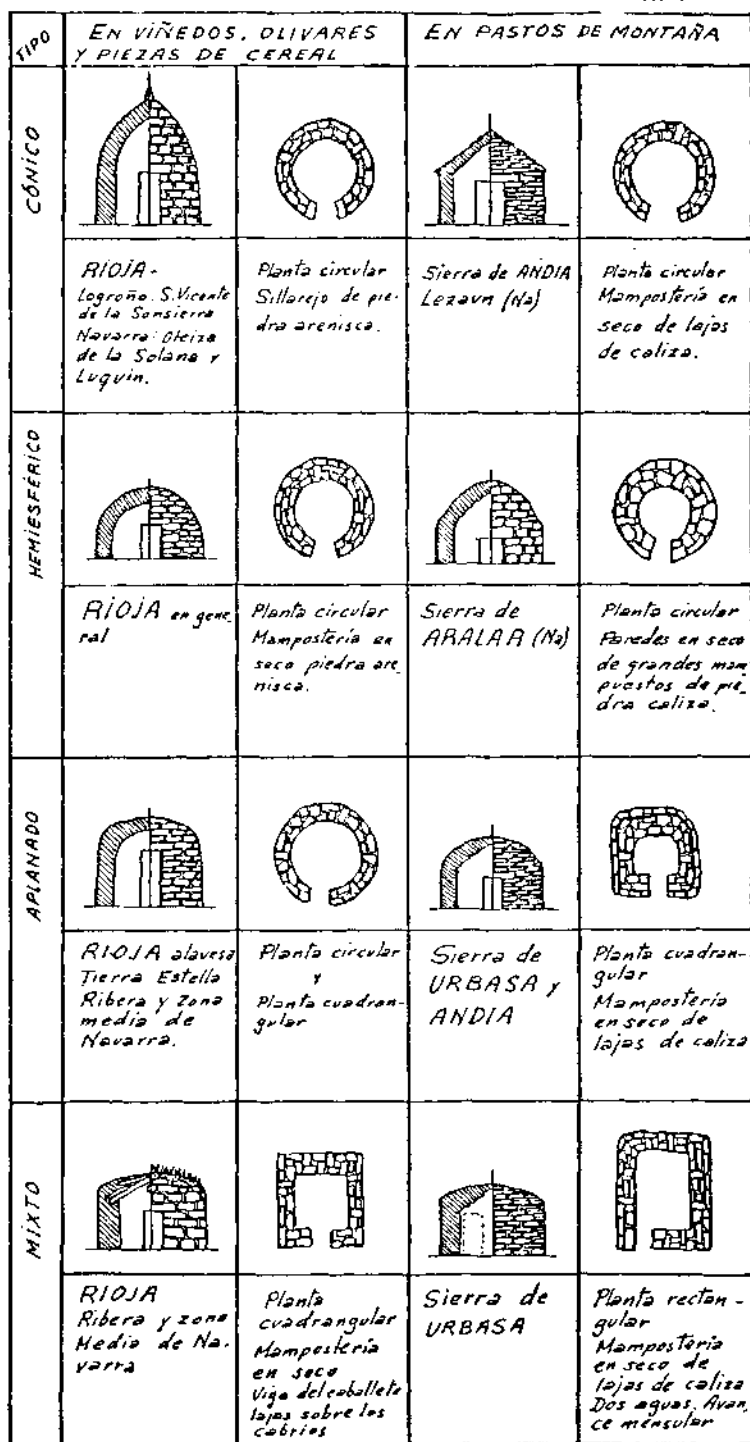 TIPO
EN VIÑEDOS, OLIVARES
Y PIEZAS DE CEREAL
EN PASTOS DE MONTAÑA
CÓNICO
RIOJA-
Logroño. S.Vicente
de la Sonsierra
Navarra: Oteiza
de la Solana y
Luquin.
Planta circular
Sillarejo de pie-
dra arenisca.
Sierra de ANDIA
Lezaun (Na)
Planta circular
Mampostería en
seco de lajas
de caliza.
HEMIESFÉRICO
RIOJA en gene-
ral
Planta circular
Mampostería en
seco piedra are-
nisca.
Sierra de
ARALAR (Na)
Planta circular
Paredes en seco
de grandes mam-
puestos de pie-
dra caliza.
APLANADO
RIOJA alavesa
Tierra Estella
Ribera y Zona
media de
Navarra.
Planta circular
y
Planta cuadran-
gular
Sierra de
URBASA y
ANDIA
Planta cuadran-
gular
Mampostería
en seco de
lajas de caliza
MIXTO
RIOJA
Ribera y zona
Media de Na-
varra
Planta
cuadrangular
Mampostería
en seco
Viga del caballete
lajas sobre los
cabrios
Sierra de
URBASA
Planta rectan-
gular
Mampostería
en seco de
lajas de caliza
Dos aguas. Avan-
ce mensular